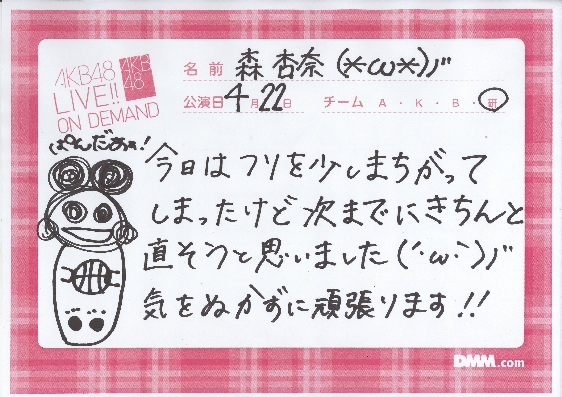 AKB48
LIVE!!
ON DEMAND
AKB
48
名前 森 杏奈 (*ω*)ノ"
公演日 4月22日 チーム A・K・B・研
ぱんだぁぁ!
今日はフリを少しまちがって
しまったけど次までにきちんと
直そうと思いました(´・ω・`)ノ"
気をぬかずに頑張ります!!
DMM.com